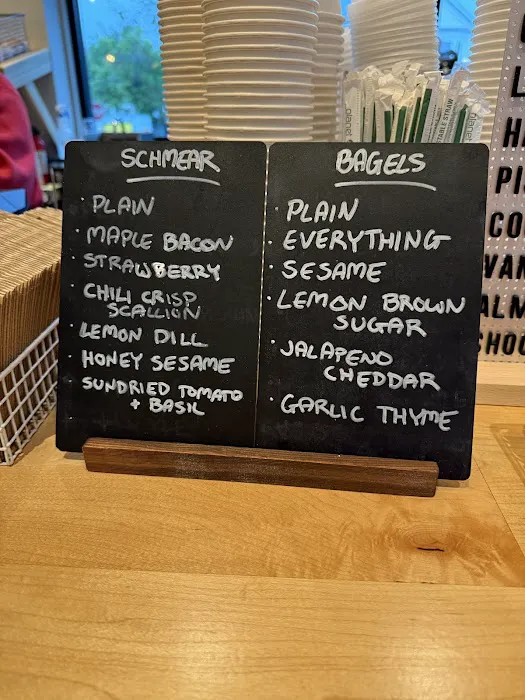 SCHMEAR
· PLAIN
· MAPLE BACON
· STRAWBERRY
· CHILI CRISP
SCALLION
· LEMON DILL
· HONEY SESAME
· SUNDRIED TOMATO
+ BASIL
BAGELS
· PLAIN
· EVERYTHING
· SESAME
· LEMON BROWN
SUGAR
· JALAPENO
CHEDDAR
· GARLIC THYME